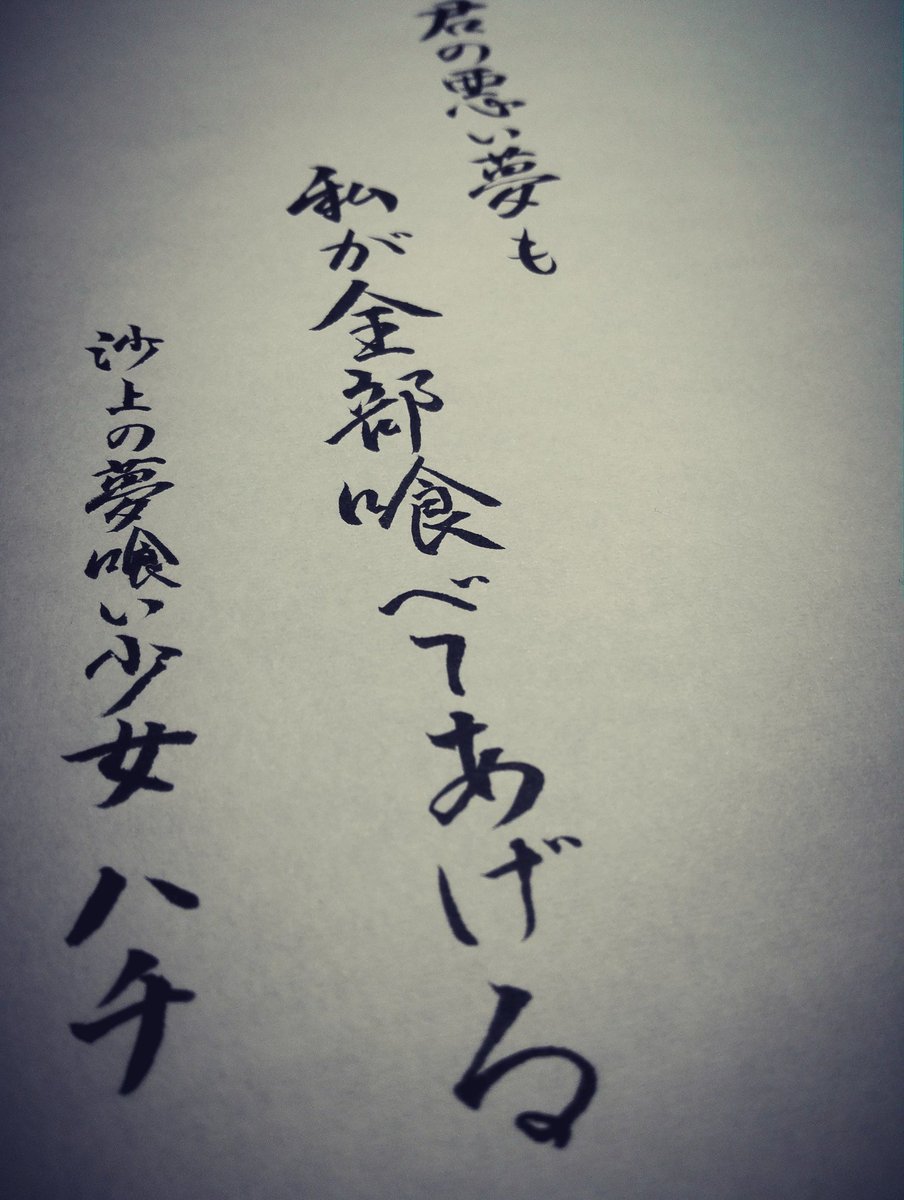 君の悪い夢も
私が全部喰べてあげる
沙上の夢喰い少女 ハチ